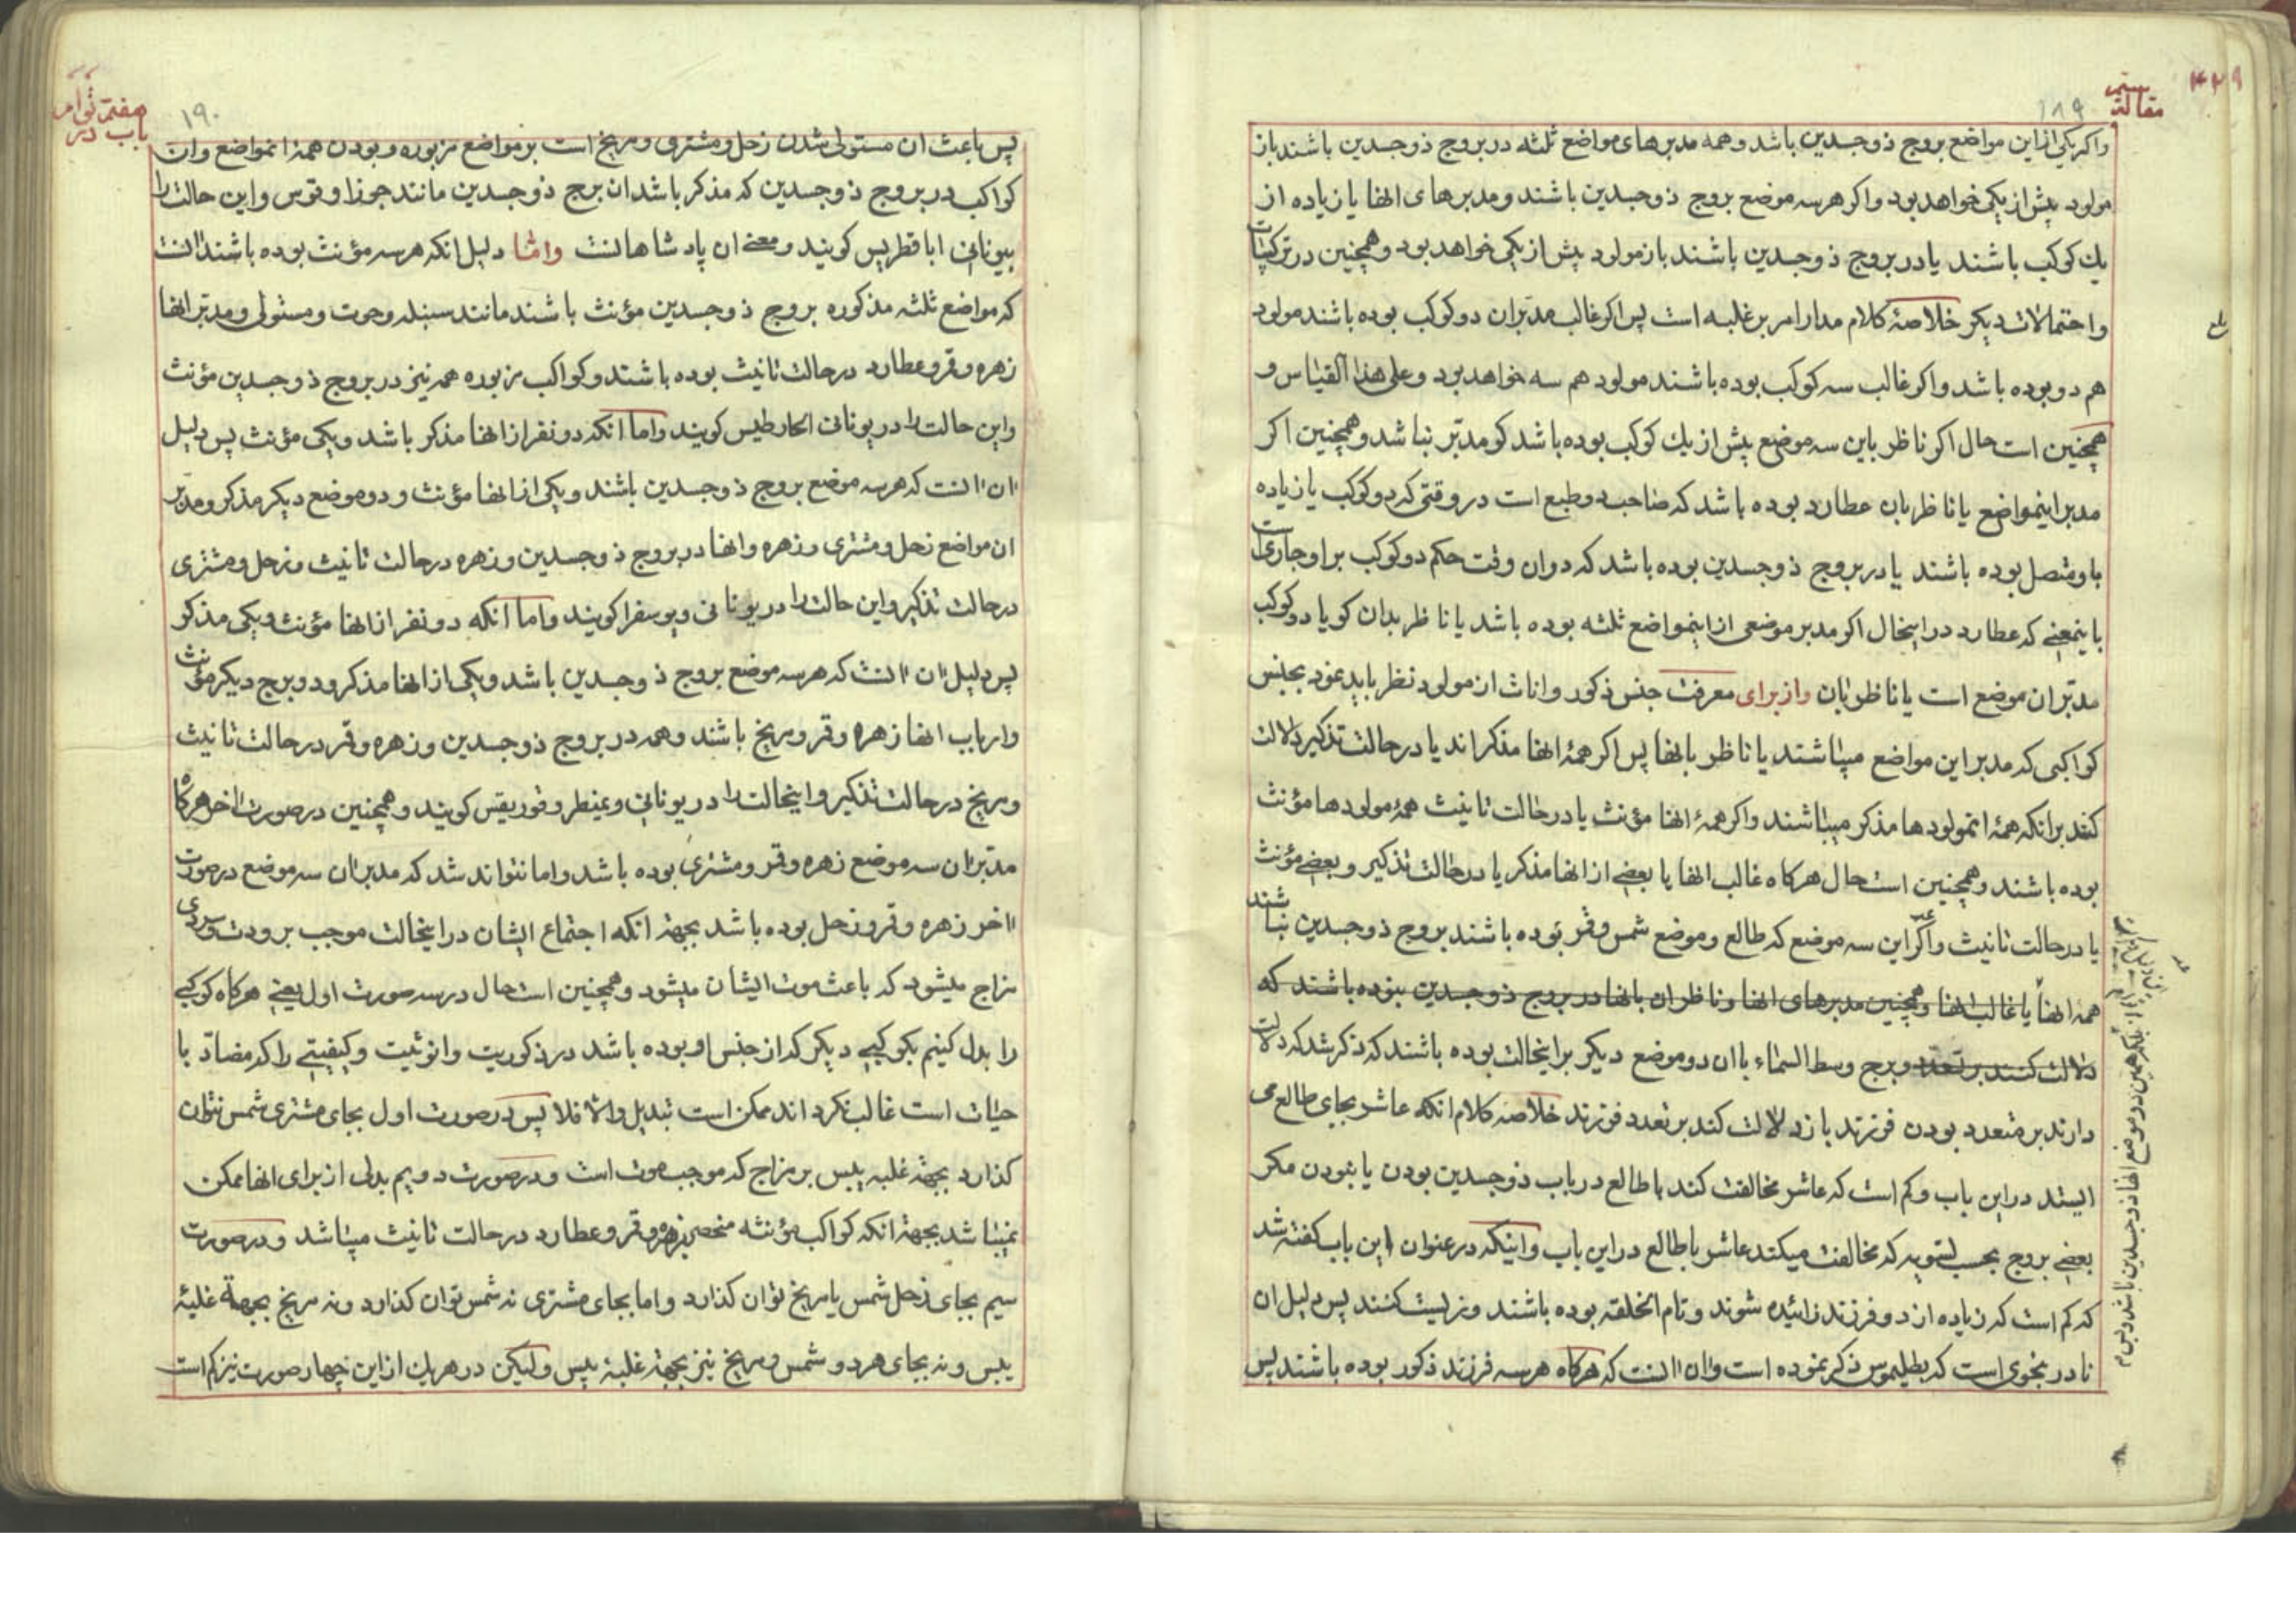 ۴۲۹
مقالة سیم
۱۸۹
واکر یکی از این مواضع بروج ذوجسدین باشد و همه مدبرهای مواضع ثلثه در بروج ذوجسدین باشند باز
مولود بیش از یکی خواهد بود واکر هر سه موضع بروج ذوجسدین باشند و مدبرهای انها یا زیاده از
یك کوکب باشند یا در بروج ذوجسدین باشند باز مولود بیش از یکی خواهد بود و همچنین در ترکیبات
واحتمالات دیکر خلاصهٔ کلام مدار امر بر غلبه است پس اکر غالب مدبران دو کوکب بوده باشند مولود
هم دو بوده باشد واکر غالب سه کوکب بوده باشند مولود هم سه خواهد بود و علی هذا القیاس و
همچنین است حال اکر ناظر باین سه موضع بیش از یك کوکب بوده باشد کو مدبر نباشد و همچنین اکر
مدبر اینمواضع یا ناظر بان عطارد بوده باشد که صاحب دو طبع است در وقتی که دو کوکب یا زیاده
باو متصل بوده باشند یا در بروج ذوجسدین بوده باشد که دوان وقت حکم دو کوکب بر او جاری است
باینمعنے که عطارد در اینحال اکر مدبر موضعی از اینمواضع ثلثه بوده باشد یا ناظر بدان کویا دو کوکب
مدبر ان موضع است یا ناظر بان واز برای معرفت جنس ذکور واناث از مولود نظر باید نمود بجنس
کواکبی که مدبر این مواضع میباشند یا ناظر بانها پس اکر همهٔ انها مذکر اند یا در حالت تذکیر دلالت
کنند بر انکه همهٔ انمولودها مذکر میباشند واکر همهٔ انها مؤنث یا در حالت تانیث همهٔ مولودها مؤنث
بوده باشند و همچنین است حال هرکاه غالب انها یا بعضے از انها مذکر یا در حالت تذکیر و بعضے مؤنث
یا در حالت تانیث واکر این سه موضع که طالع و موضع شمس و قمر بوده باشند بروج ذوجسدین نباشند
همه انها یا غالب انها و همچنین مدبرهای انها و ناظران بانها در بروج ذوجسدین نبوده باشند که
دلالت کنند بر تعدد و برج وسط السماء باان دو موضع دیکر بر اینحالت بوده باشند که ذکر شد که دلالت
دارند بر متعدد بودن فرزند باز دلالت کند بر تعدد فرزند خلاصه کلام انکه عاشر بجای طالع می
ایستد در این باب و کم است که عاشر مخالفت کند با طالع در باب ذوجسدین بودن یا نبودن مکر
بعضے بروج بحسب تسویه که مخالفت میکند عاشر با طالع در این باب و اینکه در عنوان این باب کفته شد
که کم است که زیاده از دو فرزند زائیده شوند و تام الخلقه بوده باشند و زیست کنند پس دلیل ان
نادر بنحوی است که بطلیموس ذکر نموده است وان انست که هرکاه هر سه فرزند ذکور بوده باشند پس
باب در هفتم توأم
۱۹۰
پس باعث ان مستولی شدن زحل و مشتری و مریخ است بر مواضع مزبوره و بودن همهٔ انمواضع وان
کواکب در بروج ذوجسدین که مذکر باشد ان برج ذوجسدین مانند جوزا و قوس و این حالت را
بیونانی اباقطریس کویند و معنے ان پادشاهانست واما دلیل انکه هر سه مؤنث بوده باشند انست
که مواضع ثلثه مذکوره بروج ذوجسدین مؤنث باشند مانند سنبله و حوت و مستولی و مدبر انها
زهره و قمر و عطارد در حالت تانیث بوده باشند و کواکب مزبوره همه نیز در بروج ذوجسدین مؤنث
واین حالت را در یونانی انحارطیس کویند واما انکه دو نفر از انها مذکر باشد و یکی مؤنث پس دلیل
ان انست که هر سه موضع بروج ذوجسدین باشند و یکی از انها مؤنث و دو موضع دیکر مذکر و مدبر
ان مواضع زحل و مشتری و زهره وانها در بروج ذوجسدین و زهره در حالت تانیث و زحل و مشتری
در حالت تذکیر و این حالت را در یونانی ویوسفرا کویند واما انکه دو نفر از انها مؤنث و یکی مذکر
پس دلیل ان انست که هر سه موضع بروج ذوجسدین باشد و یکی از انها مذکر و دو برج دیکر مؤنث
وارباب انها زهره و قمر و مریخ باشند و همه در بروج ذوجسدین و زهره و قمر در حالت تانیث
و مریخ در حالت تذکیر و اینحالت را در یونانی ویمنطر وقوریقس کویند و همچنین در صورت اخر هرکاه
مدبر ان سه موضع زهره و قمر و مشتری بوده باشد واما نتواند شد که مدبر ان سه موضع در صورت
اخر زهره و قمر و زحل بوده باشد بجهة انکه اجتماع ایشان در اینحالت موجب برودت و سردی
مزاج میشود که باعث موت ایشان میشود و همچنین است حال در سه صورت اول یعنے هرکاه کوکبے
را بدل کنیم بکوکبے دیکر که از جنس او بوده باشد در ذکوریت وانوثیت و کیفیتے را که مضاد با
حیات است غالب نکرداند ممکن است تبدیل والا فلا پس در صورت اول بجای مشتری شمس نتوان
کذارد بجهة غلبه یبس بر مزاج که موجب موت است و در صورت دویم بدلی از برای انها ممکن
نمیباشد بجهة انکه کواکب مؤنثه منحصر بزهره و قمر و عطارد در حالت تانیث میباشد و در صورت
سیم بجای زحل شمس یا مریخ توان کذارد واما بجای مشتری نه شمس توان کذارد و نه مریخ بجهة غلبهٔ
یبس و نه بجای هر دو شمس و مریخ نیز بجهة غلبهٔ یبس ولیکن در هر یك از این چهار صورت نیز کم است